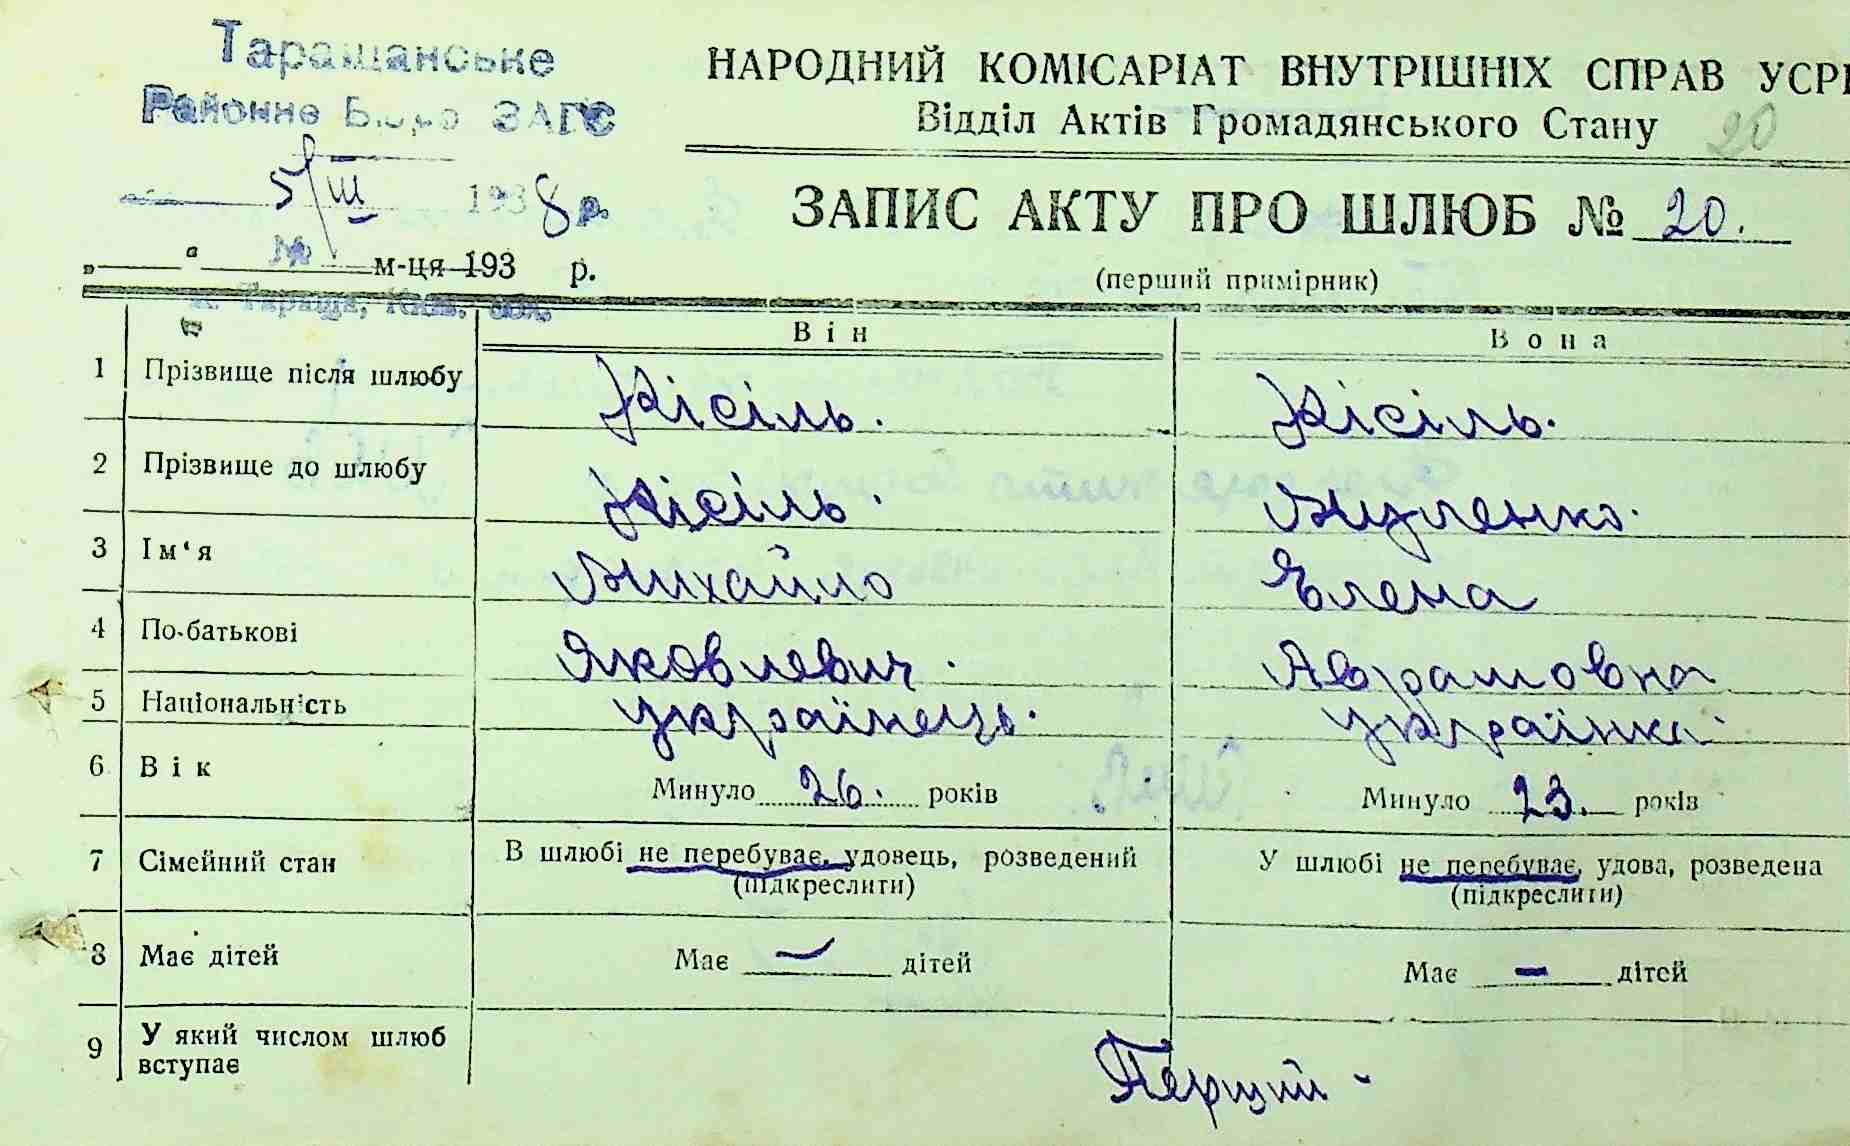 Таращанське
Районне Бюро ЗАГС
5/III 1938 р.
№
„ “ м-ця 193 р.
м. Тараща, Київ. обл.
НАРОДНИЙ КОМІСАРІАТ ВНУТРІШНІХ СПРАВ УСРР
Відділ Актів Громадянського Стану 20
ЗАПИС АКТУ ПРО ШЛЮБ № 20.
(перший примірник)
Він Вона
1 Прізвище після шлюбу Кісіль. Кісіль.
2 Прізвище до шлюбу Кісіль.
3 Ім‘я Михайло Єлена
4 По-батькові Яковлевич. Аврамовна
5 Національність українець. українка.
6 Вік Минуло 26. років Минуло 23. років
7 Сімейний стан В шлюбі не перебуває, удовець, розведений У шлюбі не перебуває, удова, розведена
(підкреслити) (підкреслити)
8 Має дітей Має — дітей Має — дітей
9 У який числом шлюб
вступає Перший -